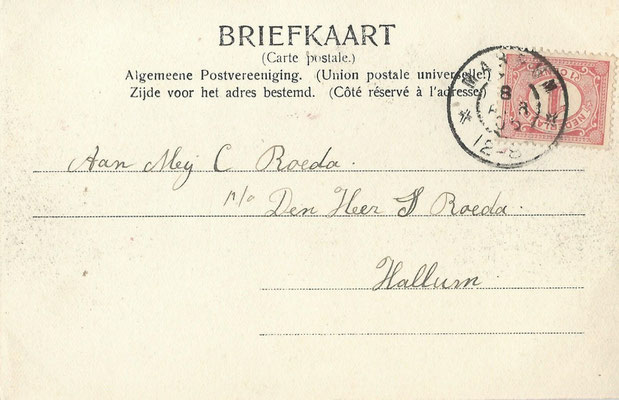 BRIEFKAART
(Carte postale.)
Algemeene Postvereeniging. (Union postale universelle.)
Zijde voor het adres bestemd. (Côté réservé à l'adresse.)
MARSUM
12-8
Aan Mej C Roeda.
p/a Den Heer S Roeda.
Hallum